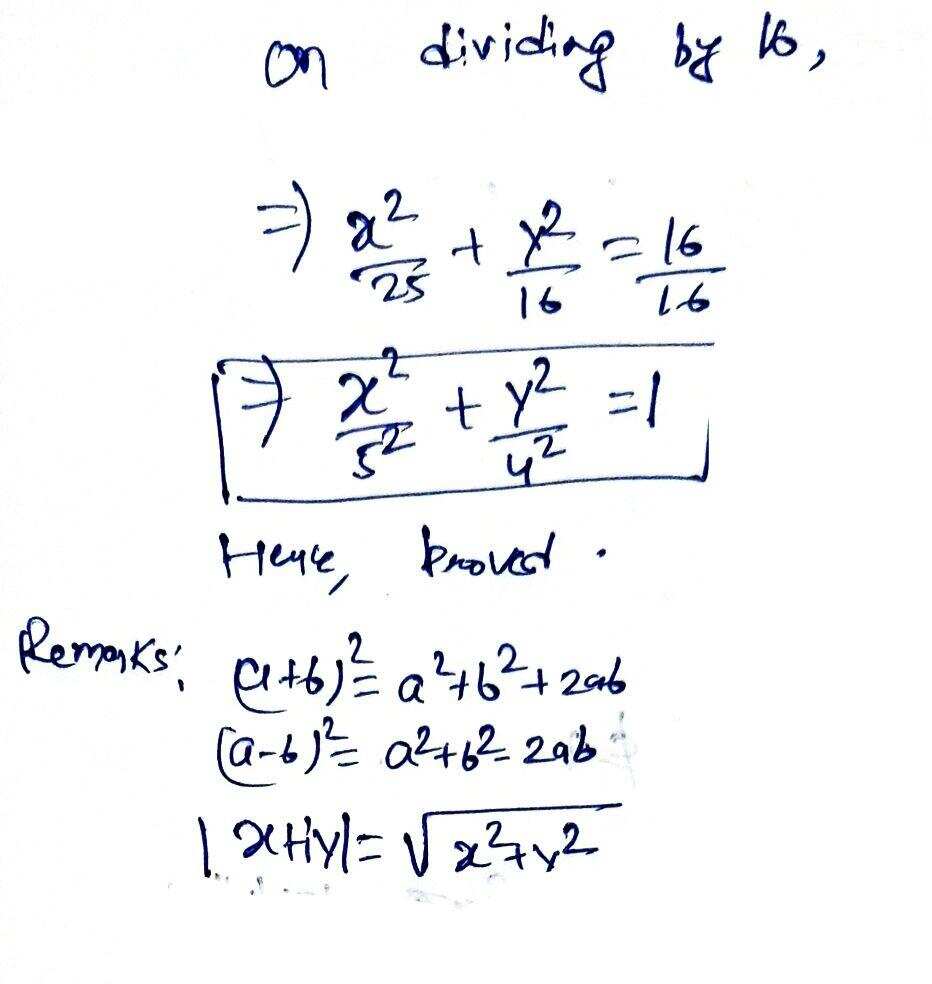 on dividing by 16,
⇒ x²/25 + y²/16 = 16/16
⇒ x²/5² + y²/4² = 1
Hence, proved.
Remarks: (a+b)² = a²+b²+2ab
(a-b)² = a²+b²-2ab
|x+iy| = √(x²+y²)